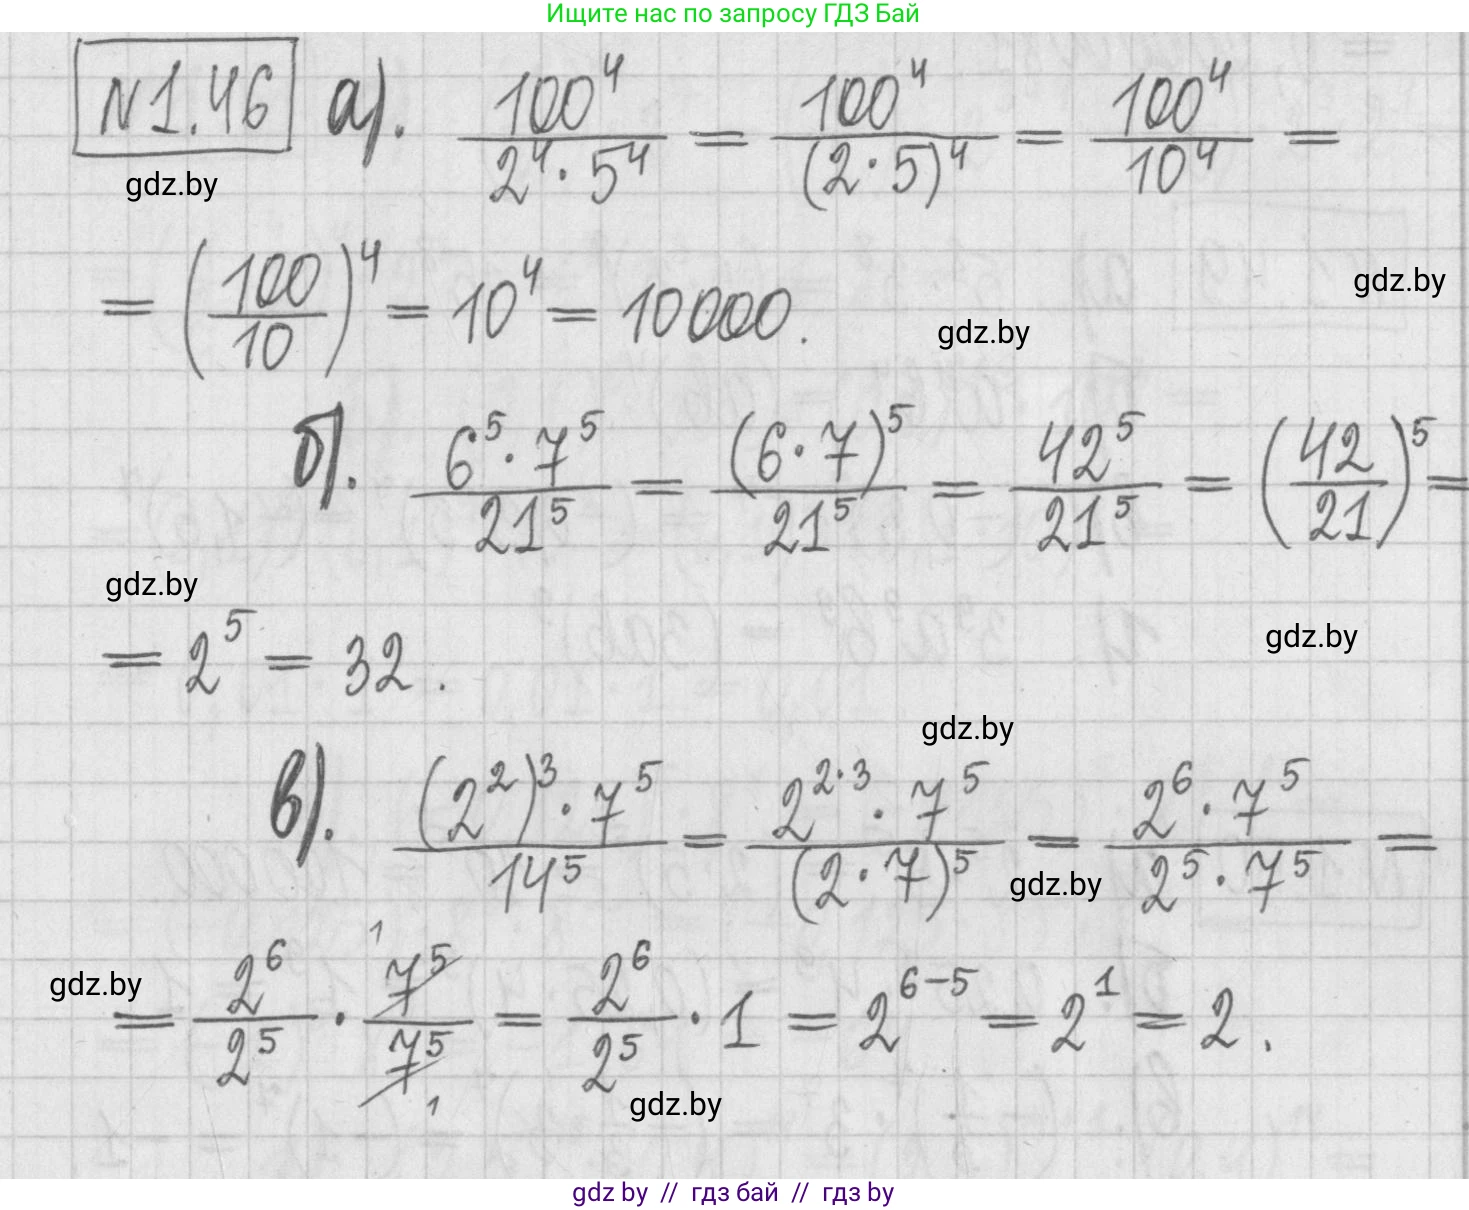 Ищите нас по запросу ГДЗ Бай
№1.46 а). 100⁴/(2⁴·5⁴) = 100⁴/(2·5)⁴ = 100⁴/10⁴ =
gdz.by
= (100/10)⁴ = 10⁴ = 10000.
gdz.by
gdz.by
б). (6⁵·7⁵)/21⁵ = (6·7)⁵/21⁵ = 42⁵/21⁵ = (42/21)⁵ =
gdz.by
= 2⁵ = 32.
gdz.by
gdz.by
в). ((2²)³·7⁵)/14⁵ = (2^(2·3)·7⁵)/(2·7)⁵ = (2⁶·7⁵)/(2⁵·7⁵) =
gdz.by
gdz.by
= 2⁶/2⁵ · ¹7⁵/7⁵₁ = 2⁶/2⁵ · 1 = 2⁶⁻⁵ = 2¹ = 2.
gdz.by
gdz by // гдз бай // гдз by